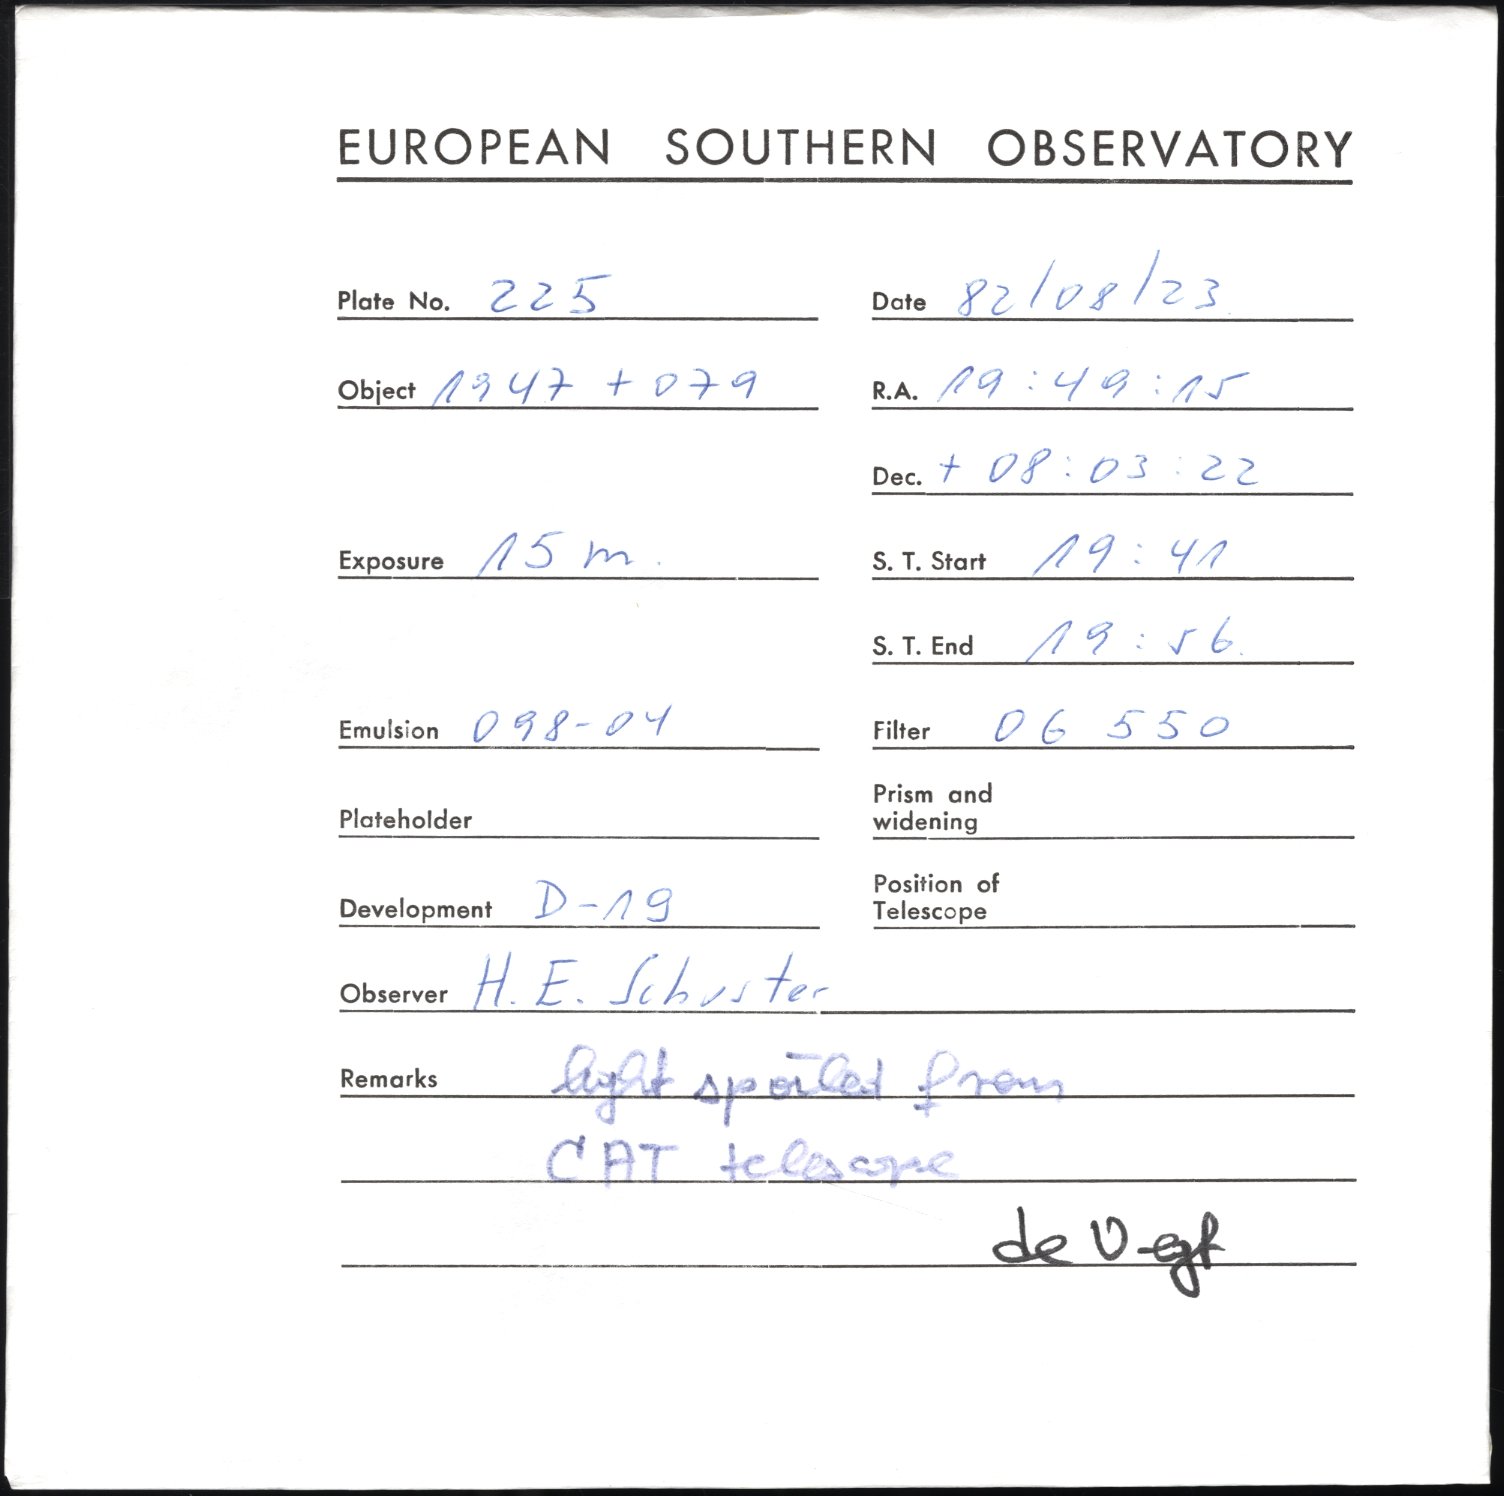 EUROPEAN SOUTHERN OBSERVATORY
Plate No. 225
Date 82/08/23
Object 1947 + 079
R.A. 19:49:15
Dec. + 08:03:22
Exposure 15 m.
S. T. Start 19:41
S. T. End 19:56
Emulsion 098-04
Filter OG 550
Plateholder
Prism and
widening
Development D-19
Position of
Telescope
Observer H. E. Schuster
Remarks light spoiled from
CAT telescope
de Vegt